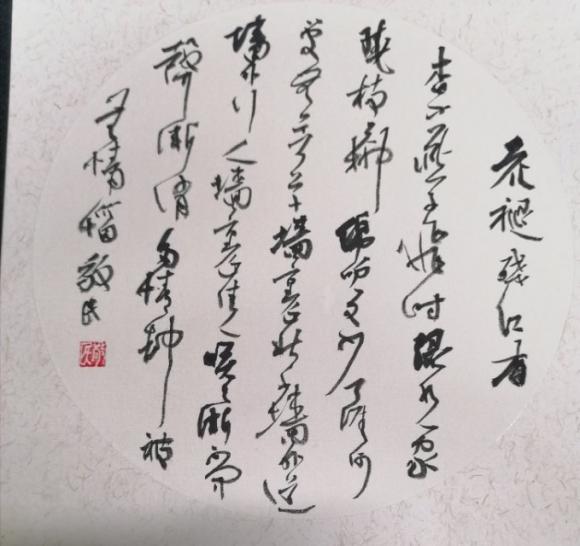 花褪残红青
杏小燕子飞时绿水人家
绕枝上柳绵吹又少天涯何
处无芳草墙里秋千墙外道
墙外行人墙里佳人笑渐不闻
聲渐悄多情却被
无情恼敬民